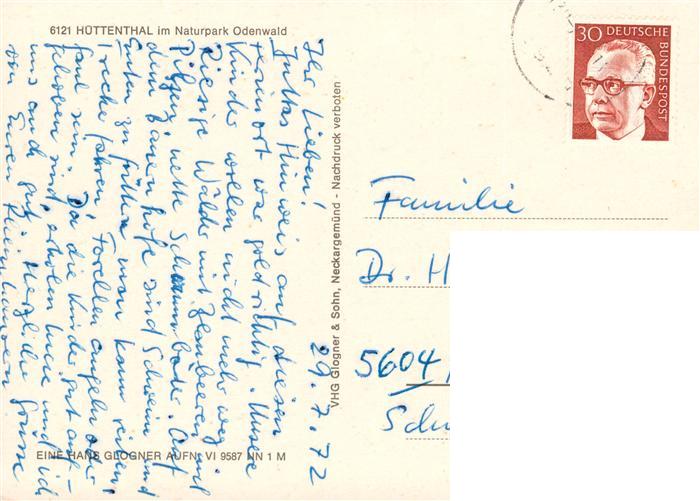 6121 HÜTTENTHAL im Naturpark Odenwald
29.7.72
Ihr Lieben!
Juttas Hinweis auf diesen
Ferienort war goldrichtig. Unsere
Kinder wollen nicht mehr weg.
Riesige Wälder mit Blaubeeren und
Pilzen, nette Schwimmbäder. Auf
dem Bauernhof sind Schweine und
Enten zu füttern, man kann reiten,
Trecker fahren, Forellen angeln oder
faul sein. Da die Kinder gut auf-
gehoben sind, erholen und ich
uns auch gut. Herzliche Grüsse
von Euren
EINE HANS GLOGNER AUFN. VI 9587 NN 1 M
VHG Glogner & Sohn, Neckargemünd - Nachdruck verboten
30 DEUTSCHE
BUNDESPOST
Familie
Dr. H
5604
Sch